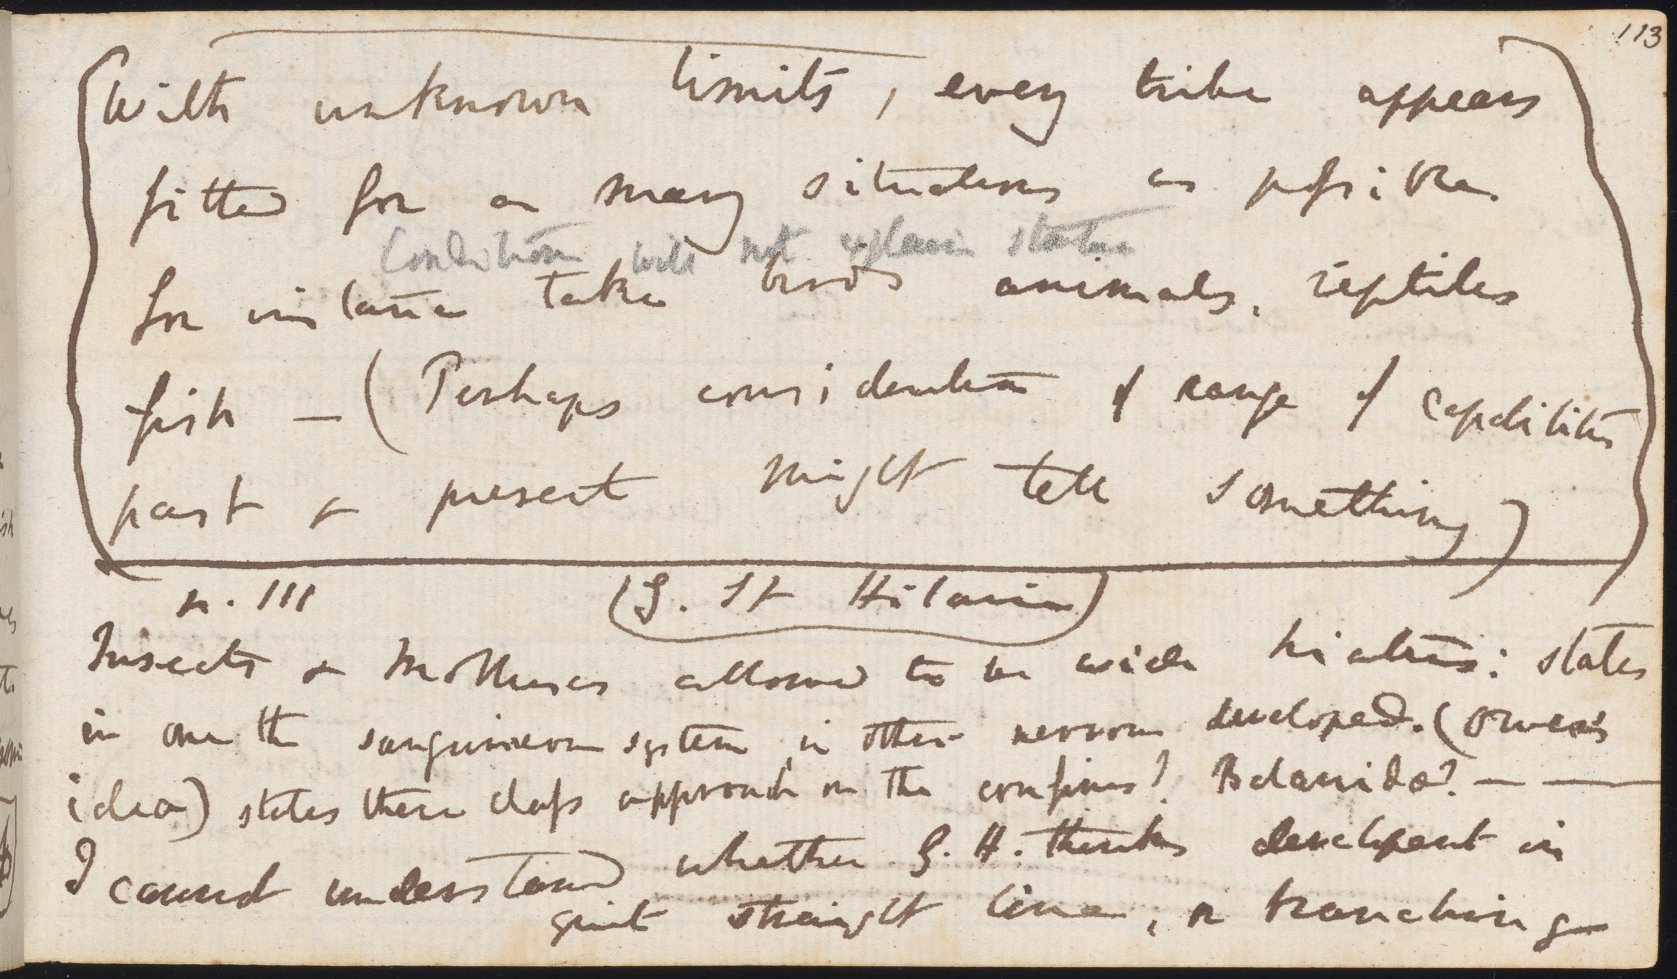 113
With unknown limits, every tribe appears
fitted for as many situations as possible.
Condition will not explain states
for instance take birds animals, reptiles
fish — (Perhaps consideration of range of capabilities
past & present might tell something)
p. 111 (G. St Hilaire)
Insects & Molluscs allowed to be wide hiatus: states
in one the sanguineous system in other nervous developed. (Owen's
idea) states these class approach on the confines? Balanidæ? — —
I cannot understand whether G. H. thinks development in
quite straight line, or branching